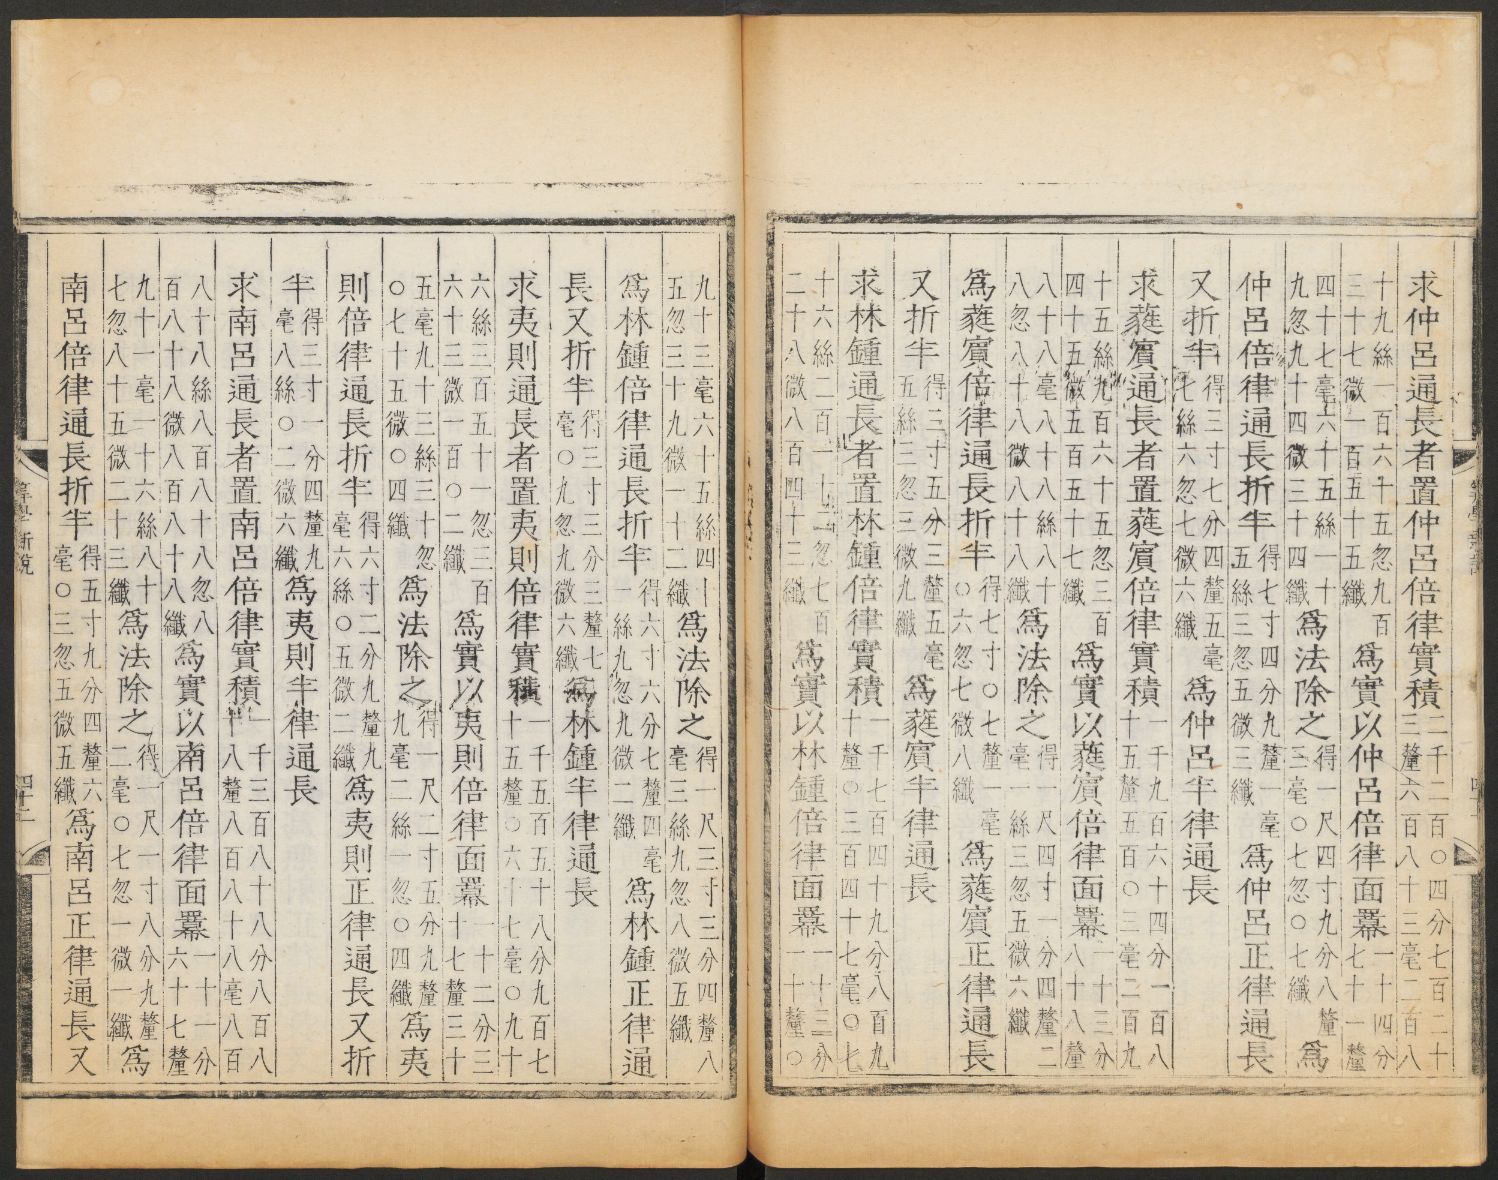 求仲呂通長者置仲呂倍律實積二千二百〇四分七百二十三釐六百八十三毫二百八
十九絲一百六十五忽九百三十七微一百五十五纖爲實以仲呂倍律面冪一十四分七十一釐
四十七毫六十五絲一十九忽九十四微四十四纖爲法除之得一尺四寸九分八釐三毫〇七忽〇七纖爲
仲呂倍律通長折半得七寸四分九釐一毫五絲三忽五微三纖爲仲呂正律通長
又折半得三寸七分四釐五毫七絲六忽七微六纖爲仲呂半律通長
求蕤賓通長者置蕤賓倍律實積一千九百六十四分一百八十五釐五百〇三毫二百九
十五絲九百六十五忽三百四十五微五百五十七纖爲實以蕤賓倍律面冪一十三分八十八釐
八十八毫八十八絲八十八忽八十八微八十八纖爲法除之得一尺四寸一分四釐二毫一絲三忽五微六纖
爲蕤賓倍律通長折半得七寸〇七釐一毫〇六忽七微八纖爲蕤賓正律通長
又折半得三寸五分三釐五毫五絲三忽三微九纖爲蕤賓半律通長
求林鍾通長者置林鍾倍律實積一千七百四十九分八百九十釐〇三百四十七毫〇七
十六絲二百一十二忽七百二十八微八百四十二纖爲實以林鍾倍律面冪一十三分一十釐〇
九十三毫六十五絲四十五忽三十九微一十二纖爲法除之得一尺三寸三分四釐八毫三絲九忽八微五纖
爲林鍾倍律通長折半得六寸六分七釐四毫一絲九忽九微二纖爲林鍾正律通
長又折半得三寸三分三釐七毫〇九忽九微六纖爲林鍾半律通長
求夷則通長者置夷則倍律實積一千五百五十八分九百七十五釐〇六十七毫〇九十
六絲三百五十一忽三百六十三微一百〇二纖爲實以夷則倍律面冪一十二分三十七釐三十
五毫九十三絲三十忽〇七十五微〇四纖爲法除之得一尺二寸五分九釐九毫二絲一忽〇四纖爲夷
則倍律通長折半得六寸二分九釐九毫六絲〇五微二纖爲夷則正律通長又折
半得三寸一分四釐九毫八絲〇二微六纖爲夷則半律通長
求南呂通長者置南呂倍律實積一千三百八十八分八百八十八釐八百八十八毫八百
八十八絲八百八十八忽八百八十八微八百八十八纖爲實以南呂倍律面冪一十一分六十七釐
九十一毫一十六絲八十七忽八十五微二十三纖爲法除之得一尺一寸八分九釐二毫〇七忽一微一纖爲
南呂倍律通長折半得五寸九分四釐六毫〇三忽五微五纖爲南呂正律通長又
算學新說
四十二